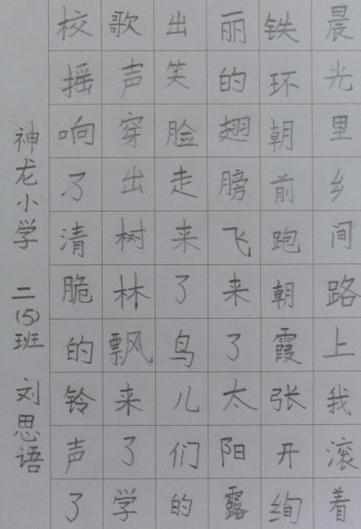 晨光里乡间路上我滚着
铁环朝前跑朝霞张开绚
丽的翅膀飞来了太阳露
出笑脸走来了鸟儿们的
歌声穿出树林飘来了学
校摇响了清脆的铃声了
神龙小学 二(5)班 刘思语